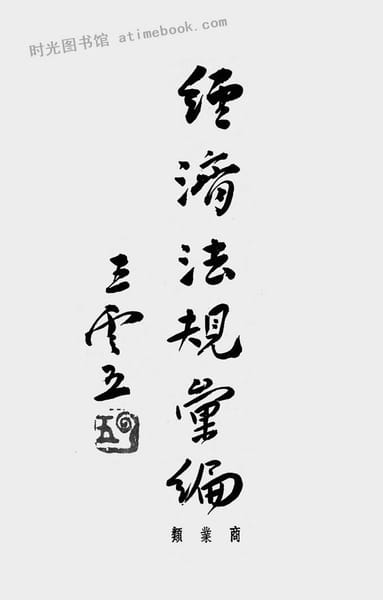 时光图书馆 atimebook.com
經濟法規彙編
王雲五
商業類